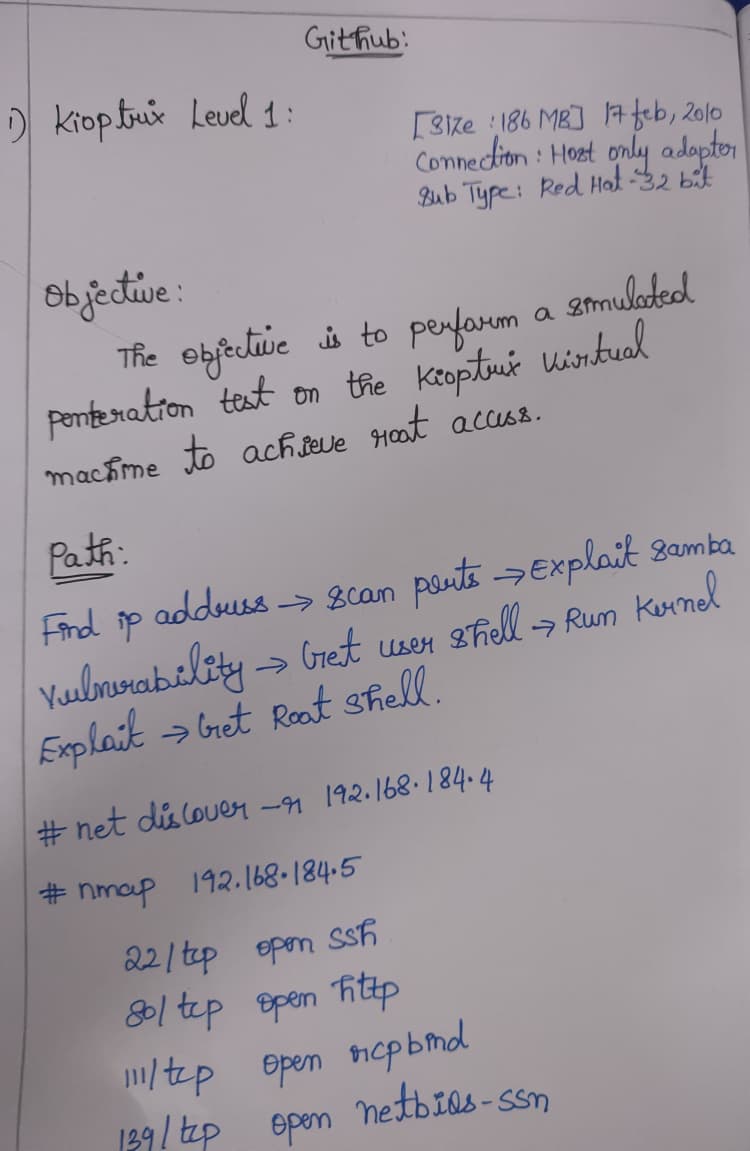 Github:
1) Kioptrix Level 1:
[Size : 186 MB] 17 feb, 2010
Connection : Host only adapter
Sub Type: Red Hat - 32 bit
Objective:
The objective is to perform a simulated
penteration test on the Kioptrix Virtual
machine to achieve root access.
Path:
Find ip address → Scan ports → Exploit Samba
Vulnerability → Get user shell → Run Kernel
Exploit → Get Root shell.
# net discover -r 192.168.184.4
# nmap 192.168.184.5
22/tcp open ssh
80/tcp open http
111/tcp open rcpbind
139/tcp open netbios-ssn